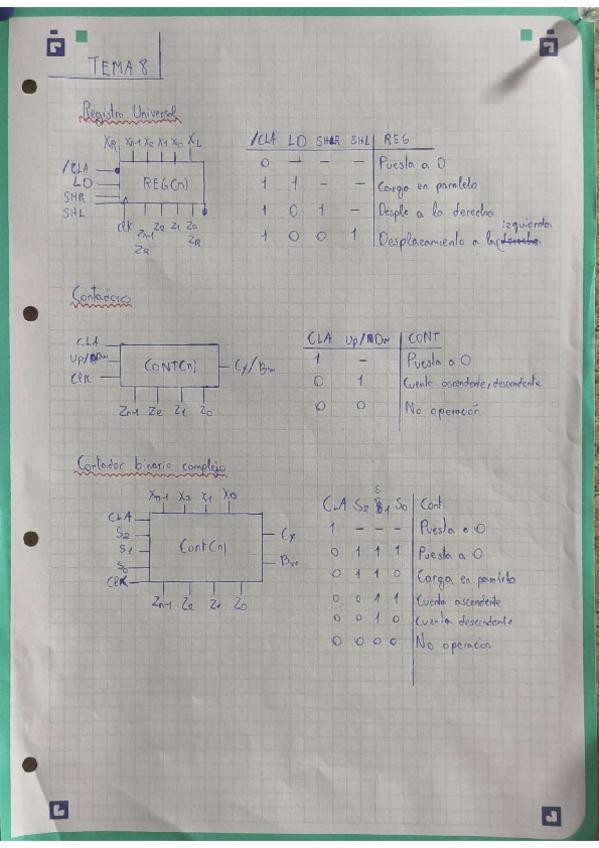 TEMA 8
Registro Universal
XR Xn-1 X2 X1 X0 XL
/CLA
LD
SHR
SHL
REG(n)
clk Zn-1 Z2 Z1 Z0
ZR ZR
/CLA LD SHR SHL REG
0 - - - Puesta a 0
1 1 - - Carga en paralelo
1 0 1 - Desple a la derecha
izquierda
1 0 0 1 Desplazamiento a la derecha
Contadores
CLA
Up/Dw
CLK
CONT(n)
Cy/Bw
Zn-1 Z2 Z1 Z0
CLA Up/Dw CONT
1 - Puesta a 0
0 1 Cuenta ascendente, descendente
0 0 No operación
Contador binario complejo
Xn-1 X2 X1 X0
CLA
S2
S1
S0
CLK
Cont(n)
Cy
Bw
Zn-1 Z2 Z1 Z0
CLA S2 S1 S0 Cont
1 - - - Puesta a 0
0 1 1 1 Puesta a 0
0 1 1 0 Carga en paralelo
0 0 1 1 Cuenta ascendente
0 0 1 0 Cuenta descendente
0 0 0 0 No operacion